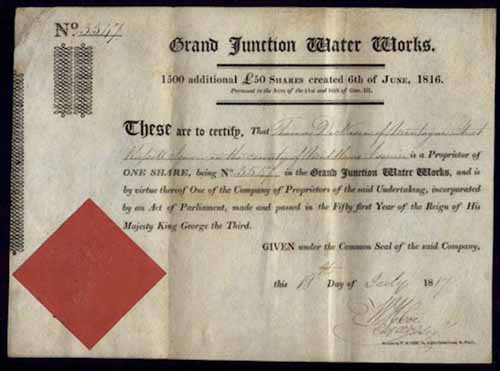 No. 5517
Grand Junction Water Works.
1500 additional £50 SHARES created 6th of JUNE, 1816.
Pursuant to the Acts of the 51st and 56th of Geo. III.
These are to certify, That Thomas Street
Russell Square in the county of Middlesex is a Proprietor of
ONE SHARE, being No. 5517 in the Grand Junction Water Works, and is
by virtue thereof One of the Company of Proprietors of the said Undertaking, incorporated
by an Act of Parliament, made and passed in the Fifty first Year of the Reign of His
Majesty King George the Third.
GIVEN under the Common Seal of the said Company,
this Day of July 1817